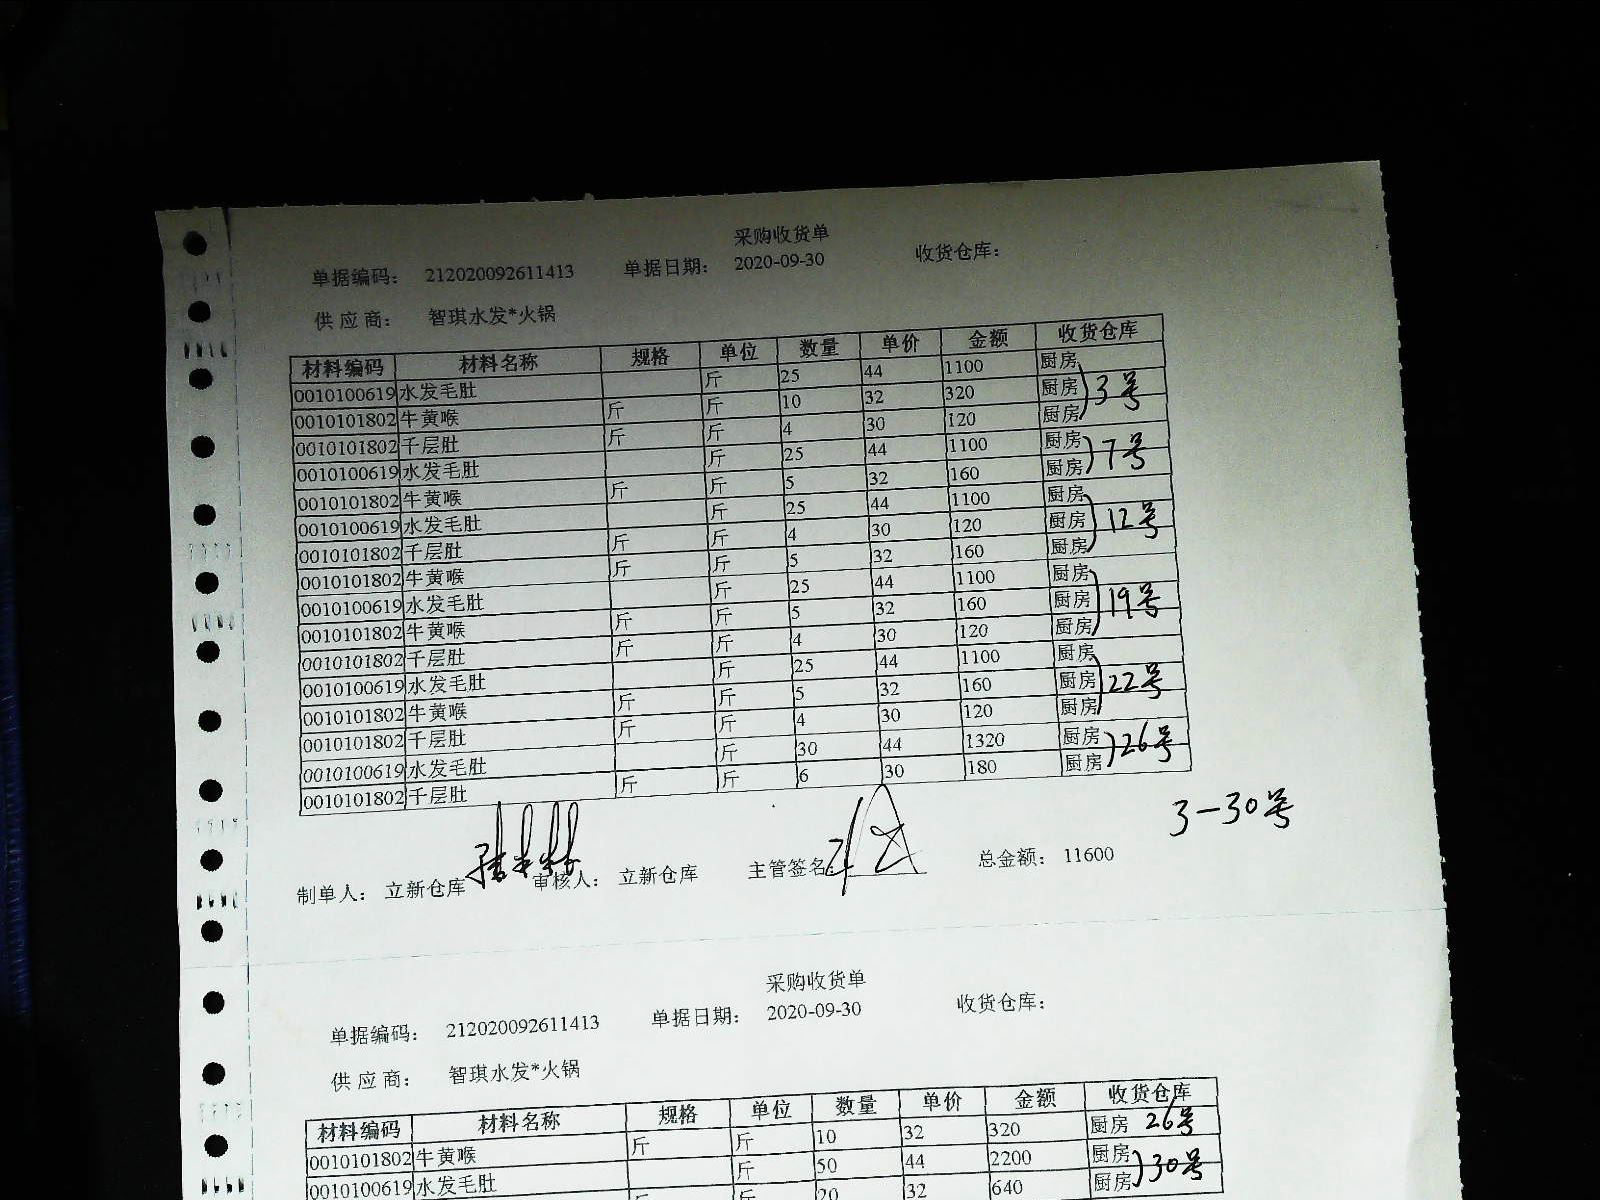 采购收货单
单据编码： 212020092611413 单据日期： 2020-09-30 收货仓库：
供应商： 智琪水发*火锅
材料编码 材料名称 规格 单位 数量 单价 金额 收货仓库
0010100619 水发毛肚 斤 25 44 1100 厨房
0010101802 牛黄喉 斤 斤 10 32 320 厨房 3号
0010101802 千层肚 斤 斤 4 30 120 厨房
0010100619 水发毛肚 斤 25 44 1100 厨房 7号
0010101802 牛黄喉 斤 斤 5 32 160 厨房
0010100619 水发毛肚 斤 25 44 1100 厨房
0010101802 千层肚 斤 斤 4 30 120 厨房 12号
0010101802 牛黄喉 斤 斤 5 32 160 厨房
0010100619 水发毛肚 斤 25 44 1100 厨房
0010101802 牛黄喉 斤 斤 5 32 160 厨房 19号
0010101802 千层肚 斤 斤 4 30 120 厨房
0010100619 水发毛肚 斤 25 44 1100 厨房
0010101802 牛黄喉 斤 斤 5 32 160 厨房 22号
0010101802 千层肚 斤 斤 4 30 120 厨房
0010100619 水发毛肚 斤 30 44 1320 厨房 26号
0010101802 千层肚 斤 斤 6 30 180 厨房
3-30号
制单人： 立新仓库 审核人： 立新仓库 主管签名： 总金额： 11600
采购收货单
单据编码： 212020092611413 单据日期： 2020-09-30 收货仓库：
供应商： 智琪水发*火锅
材料编码 材料名称 规格 单位 数量 单价 金额 收货仓库
0010101802 牛黄喉 斤 斤 10 32 320 厨房 26号
0010100619 水发毛肚 斤 50 44 2200 厨房 30号
斤 斤 20 32 640 厨房